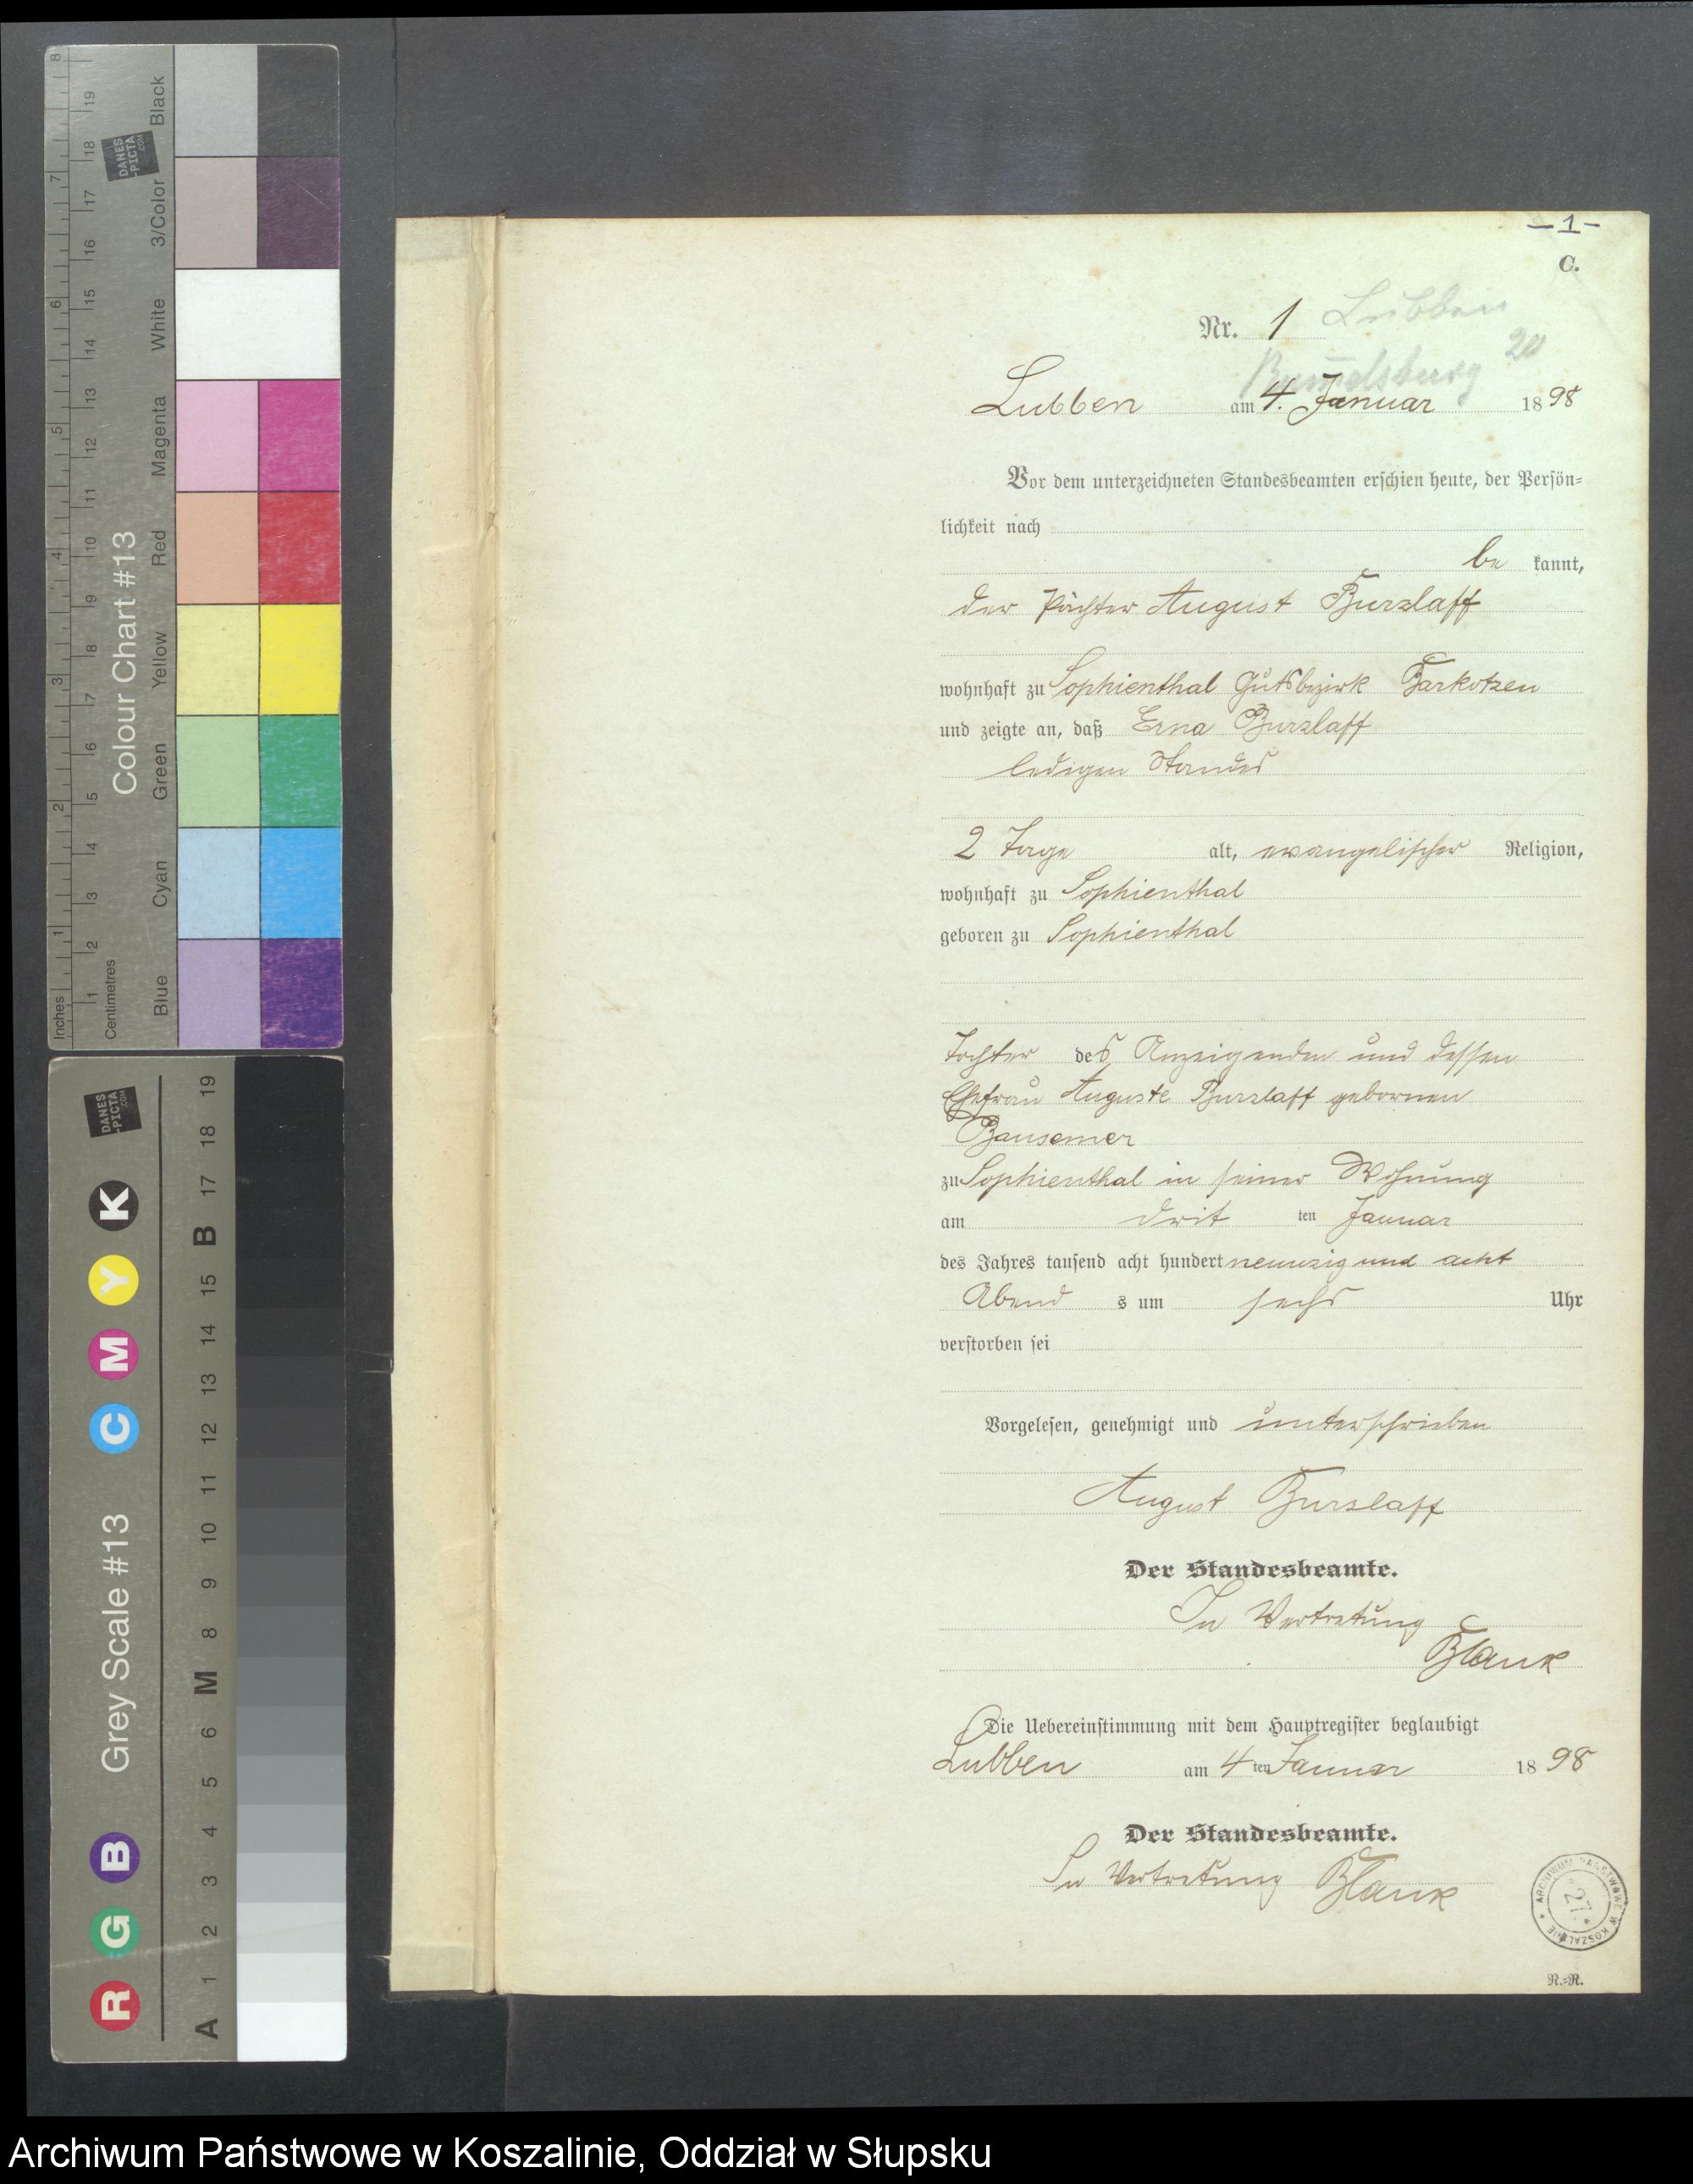 8
7
6
5
4
3
2
1
Inches
19
18
17
16
15
14
13
12
11
10
9
8
7
6
5
4
3
2
1
Centimetres
Colour Chart #13
DANES
-PICTA
.COM
Black
3/Color
White
Magenta
Red
Yellow
Green
Cyan
Blue
DANES
-PICTA
.COM
Grey Scale #13
K
Y
M
C
B
G
R
19
18
17
B
15
14
13
12
11
10
9
8
M
6
5
4
3
2
1
A
-1-
C.
Nr. 1 Lubben
Rummelsburg 20
Lubben am 4. Januar 1898
Vor dem unterzeichneten Standesbeamten erschien heute, der Persön=
lichkeit nach
be kannt,
der Pächter August Burzlaff
wohnhaft zu Sophienthal Gutsbezirk Barkotzen
und zeigte an, daß Erna Burzlaff
ledigen Standes
2 Tage alt, evangelischer Religion,
wohnhaft zu Sophienthal
geboren zu Sophienthal
Tochter des Anzeigenden und dessen
Ehefrau Auguste Burzlaff gebornen
Bansemer
zu Sophienthal in seiner Wohnung
am dritten Januar
des Jahres tausend acht hundert neunzig und acht
Abend s um sechs Uhr
verstorben sei
Vorgelesen, genehmigt und unterschrieben
August Burzlaff
Der Standesbeamte.
In Vertretung
Blank
Die Uebereinstimmung mit dem Hauptregister beglaubigt
Lubben am 4 ten Januar 1898
Der Standesbeamte.
In Vertretung Blank
ARCHIWUM PAŃSTWOWE W KOSZALINIE
27
R.=R.
Archiwum Państwowe w Koszalinie, Oddział w Słupsku